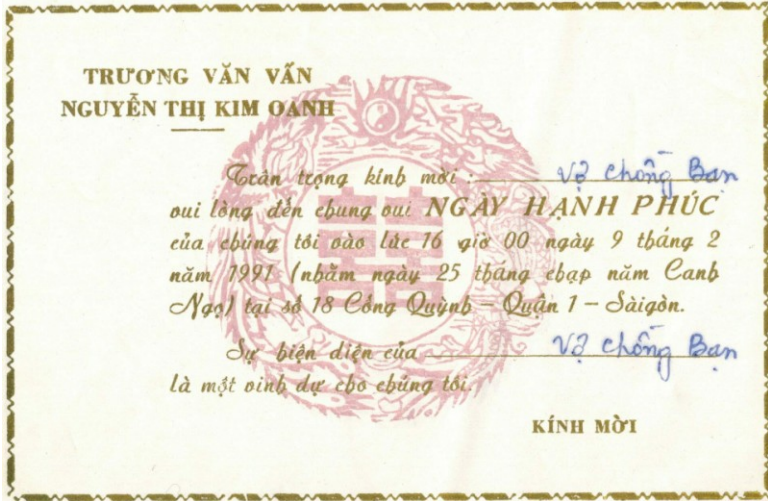 TRƯƠNG VĂN VẤN
NGUYỄN THỊ KIM OANH
Trân trọng kính mời : Vợ chồng Bạn
vui lòng đến chung vui NGÀY HẠNH PHÚC
của chúng tôi vào lúc 16 giờ 00 ngày 9 tháng 2
năm 1991 (nhằm ngày 25 tháng chạp năm Canh
Ngọ) tại số 18 Cống Quỳnh – Quận 1 – Sàigòn.
Sự hiện diện của Vợ chồng Bạn
là một vinh dự cho chúng tôi.
KÍNH MỜI
囍